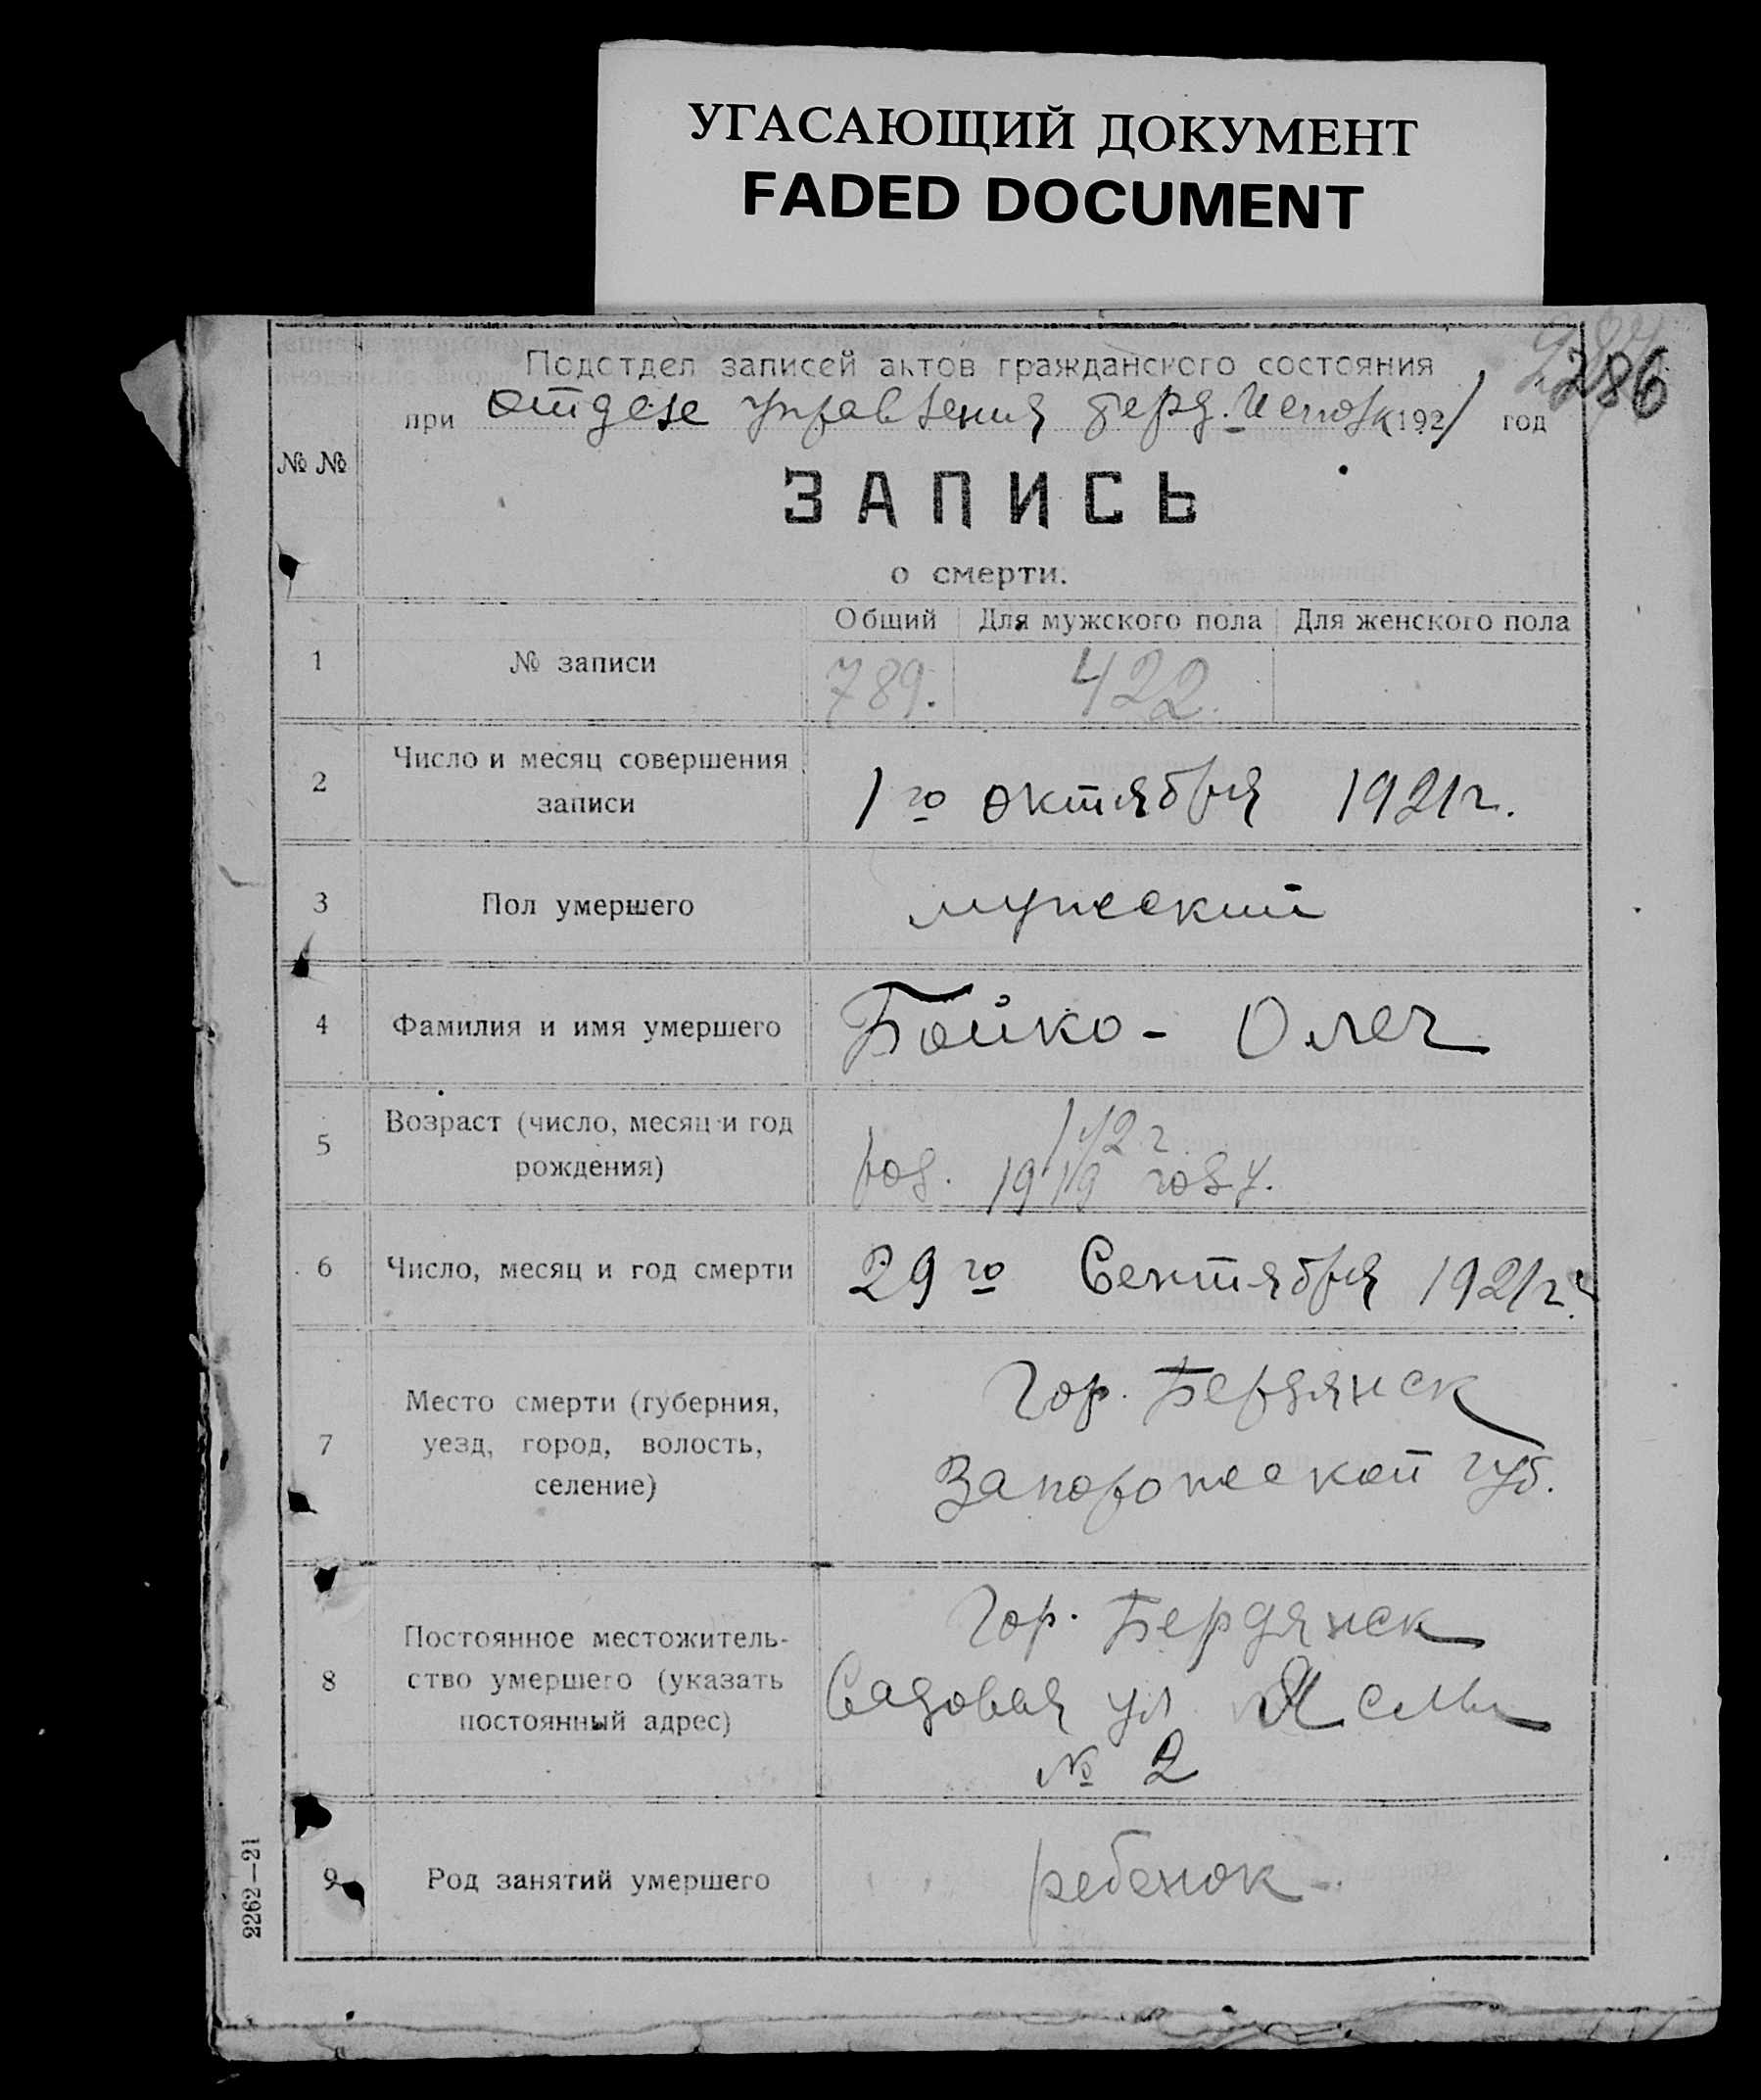 УГАСАЮЩИЙ ДОКУМЕНТ
FADED DOCUMENT
286
Подотдел записей актов гражданского состояния
при отделе управления берд. 1921 год
№ №
ЗАПИСЬ
о смерти.
Общий Для мужского пола Для женского пола
1 № записи 789. 422.
2 Число и месяц совершения
записи
1го октября 1921 г.
3 Пол умершего мужеский
4 Фамилия и имя умершего Бойко - Олег
5 Возраст (число, месяц и год
рождения)
1 1/2 г.
род. 1919 году.
6 Число, месяц и год смерти 29го Сентября 1921 г.
7 Место смерти (губерния,
уезд, город, волость,
селение)
Гор. Бердянск
Запорожеской губ.
8 Постоянное местожитель-
ство умершего (указать
постоянный адрес)
Гор. Бердянск
Садовая ул. Ясли
№ 2
9 Род занятий умершего ребенок
2262—21